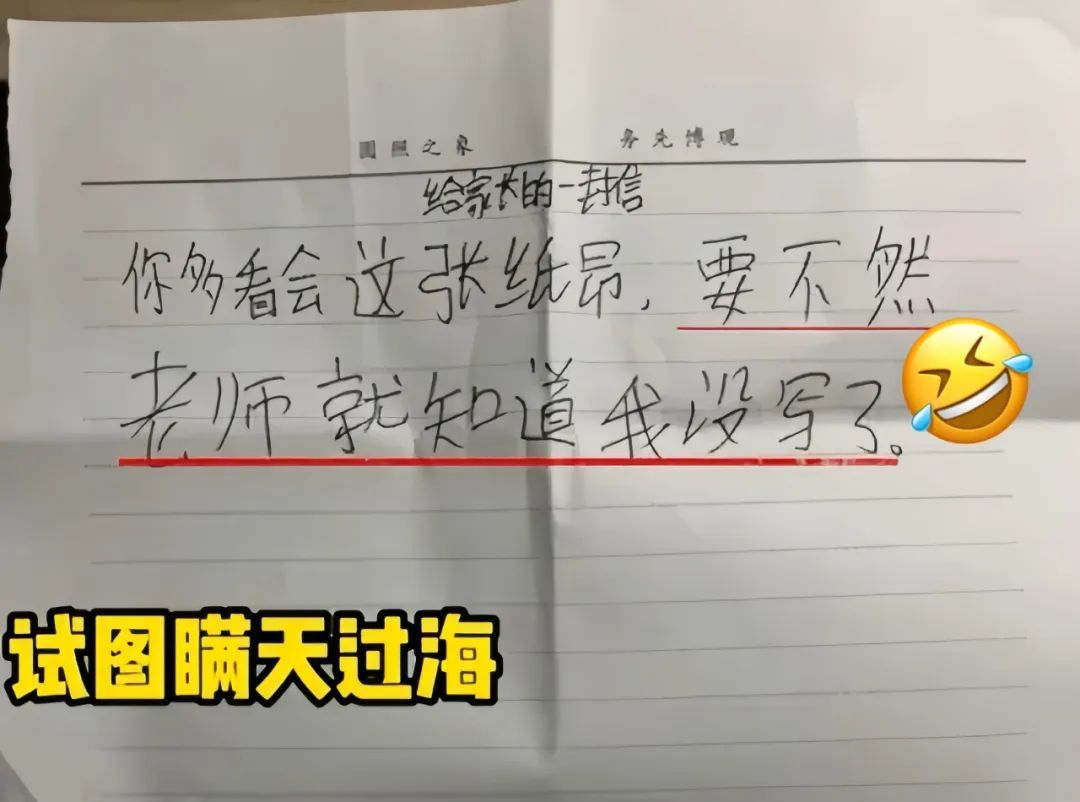 圆照之家 务先博观
给家长的一封信
你多看会这张纸昂，要不然
老师就知道我没写了。
试图瞒天过海